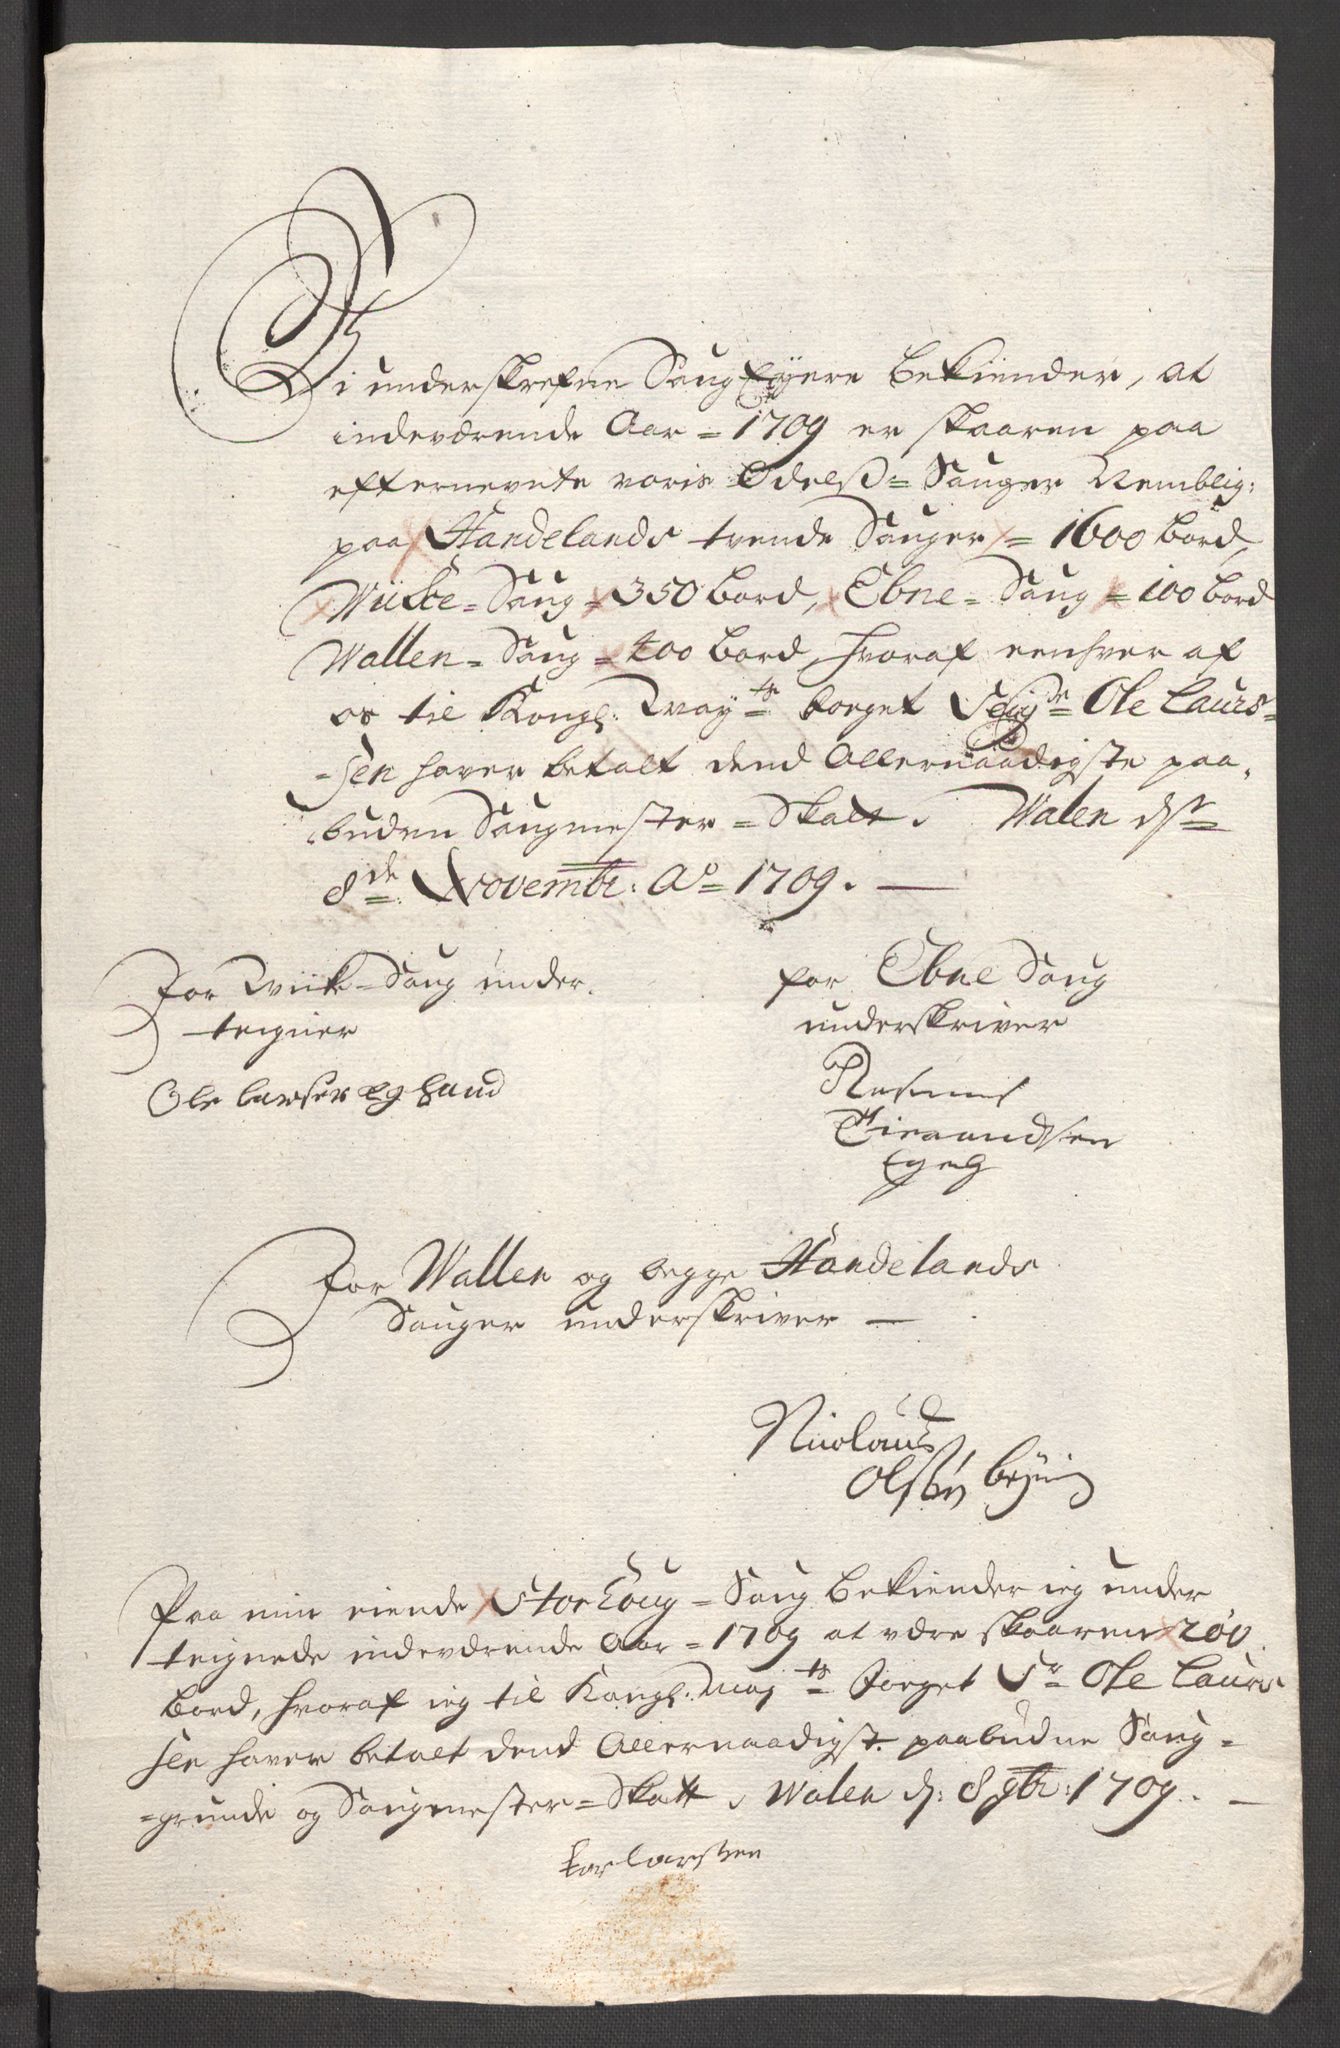 Vi underskrefne Saug Eyere bekiender, at
indeværende Aar = 1709 er skaaren paa
efternevnte voris Odelß = Sauger Nemblig:
paa Handelands tvende Sauger = 1600 bord,
Wiike = Saug = 350 bord, Ebne = Saug = 100 bord
Wallen = Saug = 400 bord, hvoraf eenhver af
os til Kongl: May ts foeget Seig.r Ole Laurs=
=sen haver betalt dend Allernaadigste paa,
buden Saugmester = Skatt. Walen dn
8de Novembr: Ao = 1709. —
for Wiike = Saug under,
teigner
Ole larsen Eg haand
for Ebne Saug
underskriver
Rasmus
For Wallen og begge Handelands
Sauger underskriver —
Nicolaus
Olsøn
Paa min eiende StorHoug = Saug bekiender ieg under
teignede indeværende Aar = 1709 at være skaaren 200
bord, hvoraf ieg til Kongl: May ts foeget Sr Ole Laurs
sen haver betalt dend Allernaadigst paabudne Saug =
=grunde og Saugmester = Skatt. Walen d: 8 9br: 1709. —
larsen